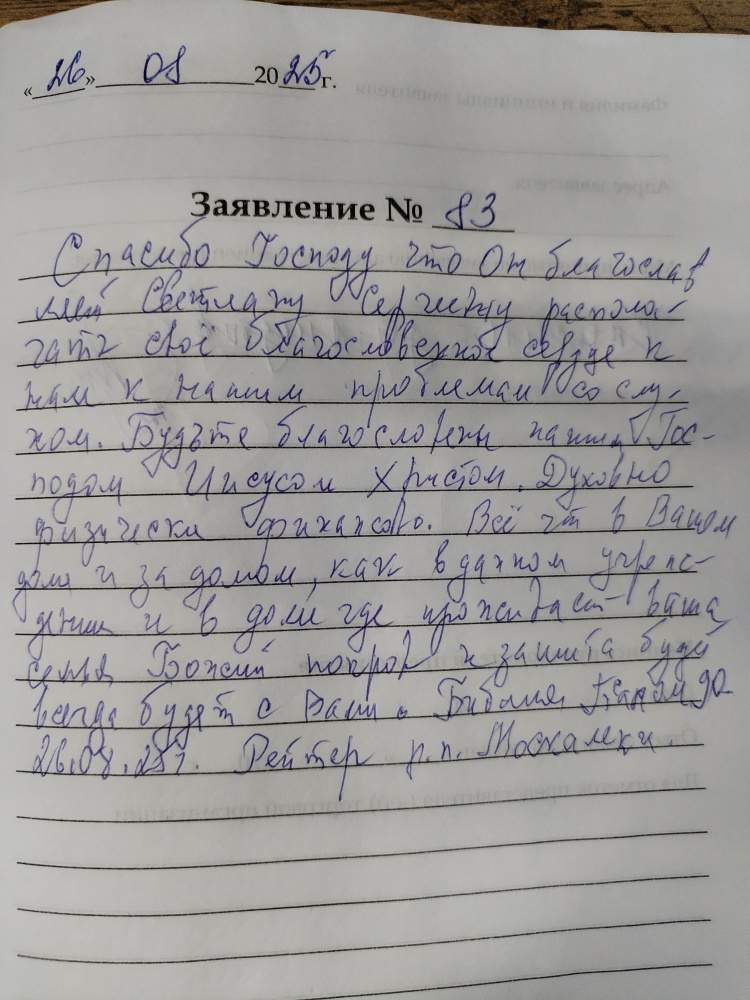 «26» 08 2025 г.
Заявление № 83
Спасибо Господу что Он благослав
ляет Светлану Сергеевну распола-
гать своё благословенное сердце к
нам к нашим проблемам со слу-
хом. Будьте благословены нашим Гос-
подом Иисусом Христом. Духовно
физически финансово. Всё что в Вашем
доме и за домом, как в данном учреж-
дении и в доме где проживает ваша
семья Божий покров и защита будут
всегда будет с Вами. Библия Псалом 90
26.08.25г. Рейтер р.п. Москаленки.